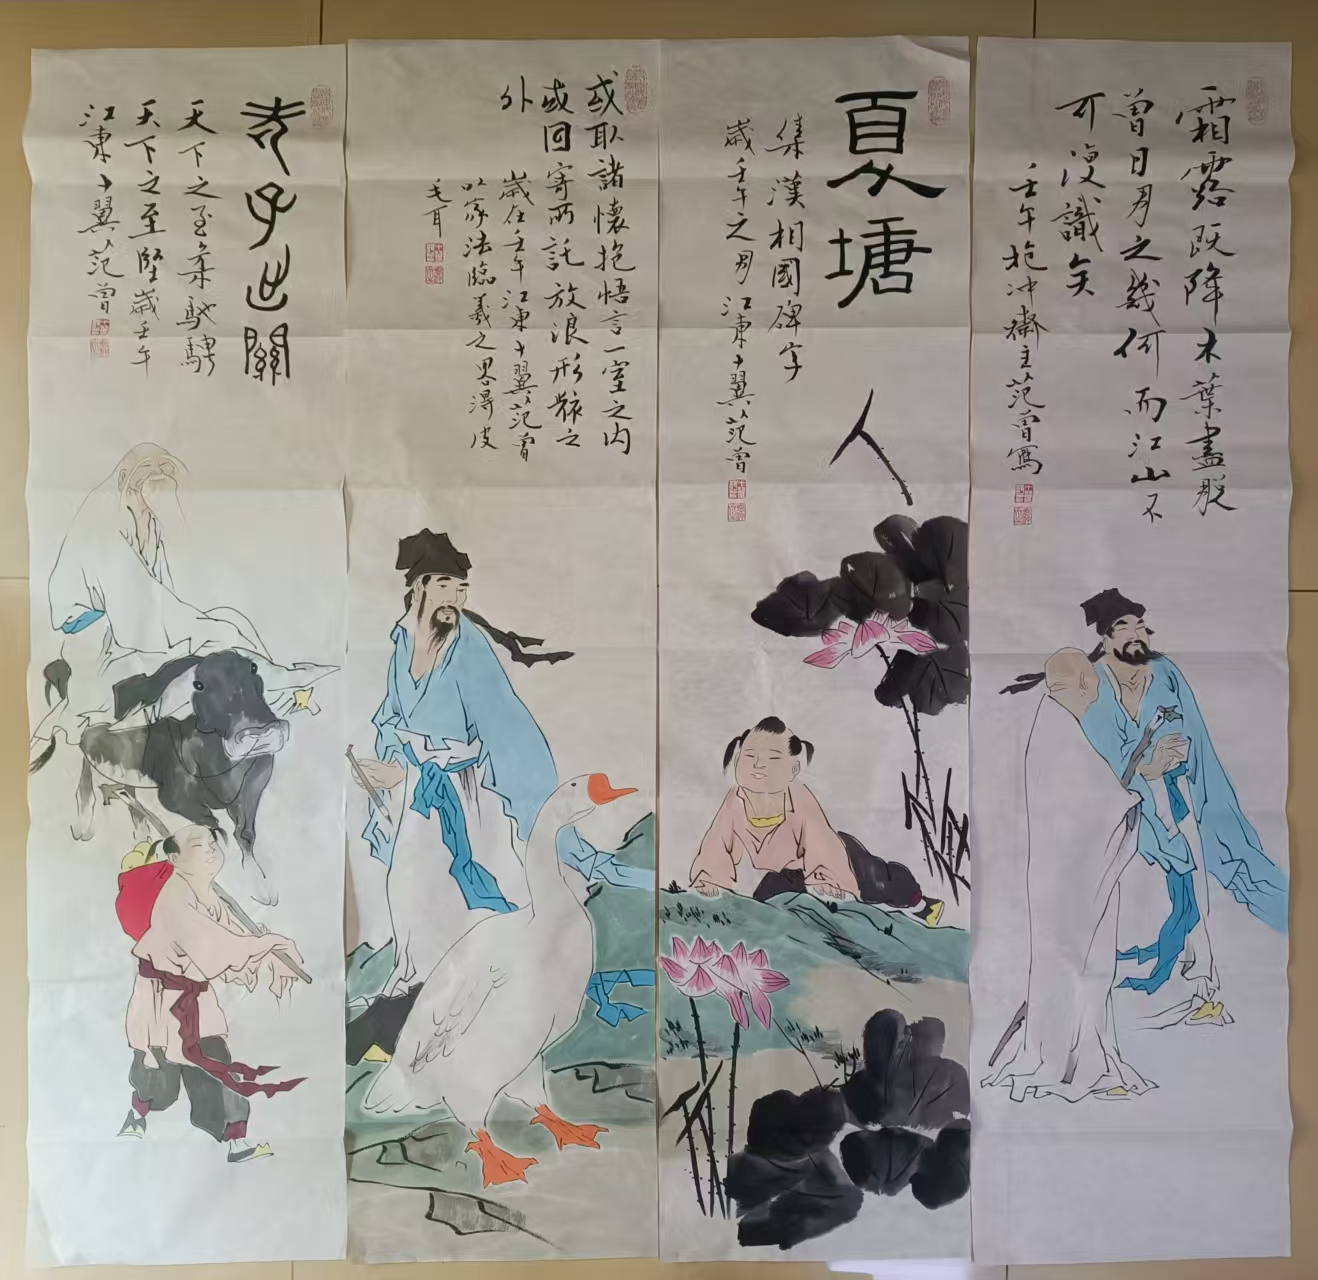 霜露既降木葉盡脫
曾日月之幾何而江山不
可復識矣
壬午抱冲齋主范曾寫
夏塘
集漢相國碑字
歲壬午之月江東十翼范曾
或取諸懷抱悟言一室之內
或因寄所託放浪形骸之
外
歲在壬午江東十翼范曾
以家法臨羲之畧得皮
毛耳
老子出關
天下之至柔馳騁
天下之至堅歲壬午
江東十翼范曾